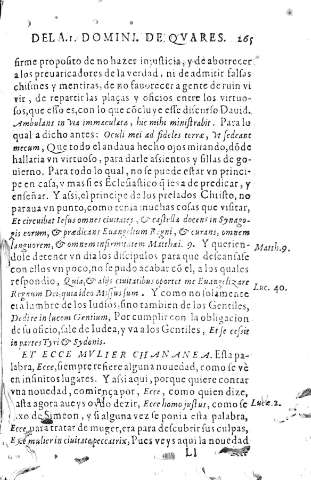 DELA I. DOMINI. DE QVARES. 265
firme proposito de no hazer injusticia, y de aborrecer
a los preuaricadores de la verdad, ni de admitir falsas
chismes y mentiras, de no fauorecer a gente de ruin vi
vir, de repartir las plaças y oficios entre los virtuo-
sos, que esso es, con lo que cõcluye esse discurso Dauid.
Ambulans in via immaculata, hic mihi ministrabit. Para lo
qual a dicho antes: Oculi mei ad fideles terræ, vt sedeant
mecum, Que todo el andaua hecho ojos mirando, dõde
hallaria vn virtuoso, para darle assientos y sillas de go-
uierno. Para todo lo qual, no se puede estar vn princi-
pe en casa, y mas si es Eclesiastico q̃ trata de predicar, y
enseñar. Y assi, el principe de los prelados Christo, no
paraua vn punto, como tenia muchas cosas que visitar,
Et circuibat Iesus omnes ciuitates, & castella docens in Synago-
gis eorum, & prædicans Euangelium Regni, & curans, omnem
languorem, & omnem infirmitatem Matthæi. 9. Y queriẽn-
Matth. 9.
dole detener vn dia los dicipulos para que descansasse
con ellos vn poco, no se pudo acabar cõ el, a los quales
respondio, Quia, & alijs ciuitatibus oportet me Euangelizare
Luc. 40.
Regnum Dei, quia ideo Missus sum. Y como no solamente
era lumbre de los Iudios, sino tambien de los Gentiles,
Dedi te in lucem Gentium, Por cumplir con la obligacion
de su oficio, sale de Iudea, y va a los Gentiles, Et secessit
in partes Tyri & Sydonis.
ET ECCE MVLIER CHANANEA. Esta pa-
labra, Ecce, siempre refiere alguna nouedad, como se vè
en infinitos lugares. Y assi aqui, porque quiere contar
vna nouedad, comiença por, Ecce, como quien dize,
asta agora aueys oydo dezir, Ecce homo justus, como se
Luc. 2.
dixo de Simeon, y si alguna vez se ponia esta palabra,
Ecce, para tratar de muger, era para descubrir sus culpas,
Ecce mulier in ciuitate peccatrix, Pues veys aqui la nouedad
Ll